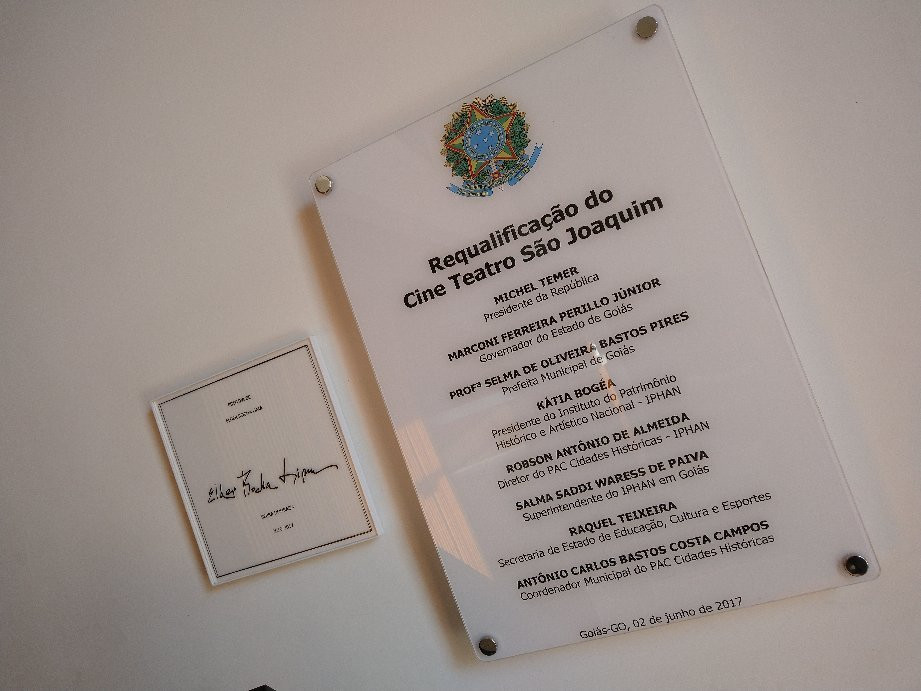 Requalificação do
Cine Teatro São Joaquim
MICHEL TEMER
Presidente da República
MARCONI FERREIRA PERILLO JÚNIOR
Governador do Estado de Goiás
PROFª SELMA DE OLIVEIRA BASTOS PIRES
Prefeita Municipal de Goiás
KÁTIA BOGÉA
Presidente do Instituto do Patrimônio
Histórico e Artístico Nacional - IPHAN
ROBSON ANTÔNIO DE ALMEIDA
Diretor do PAC Cidades Históricas - IPHAN
SALMA SADDI WARESS DE PAIVA
Superintendente do IPHAN em Goiás
RAQUEL TEIXEIRA
Secretaria de Estado de Educação, Cultura e Esportes
ANTÔNIO CARLOS BASTOS COSTA CAMPOS
Coordenador Municipal do PAC Cidades Históricas
Goiás-GO, 02 de junho de 2017